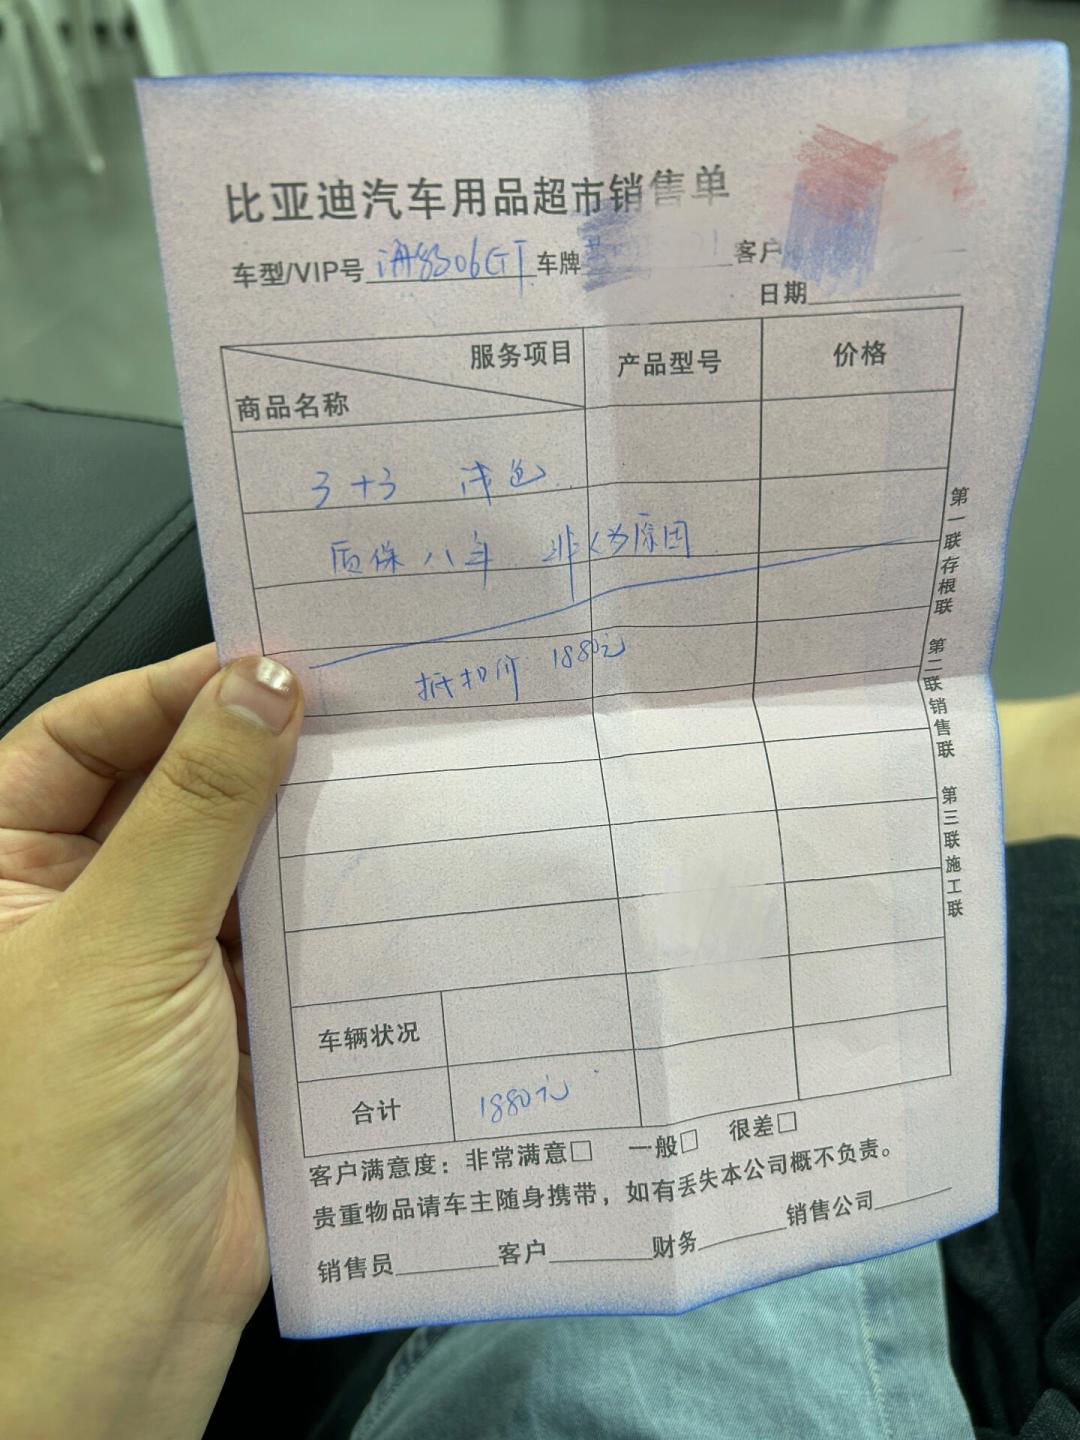 比亚迪汽车用品超市销售单
车型/VIP号 海豹06GT 车牌 客户
日期
服务项目 产品型号 价格
商品名称
3+3 浅色
质保八年 非人为原因
抵扣价 1880元
车辆状况
合计 1880元
客户满意度：非常满意□ 一般□ 很差□
贵重物品请车主随身携带，如有丢失本公司概不负责。
销售员 客户 财务 销售公司
第一联存根联 第二联销售联 第三联施工联